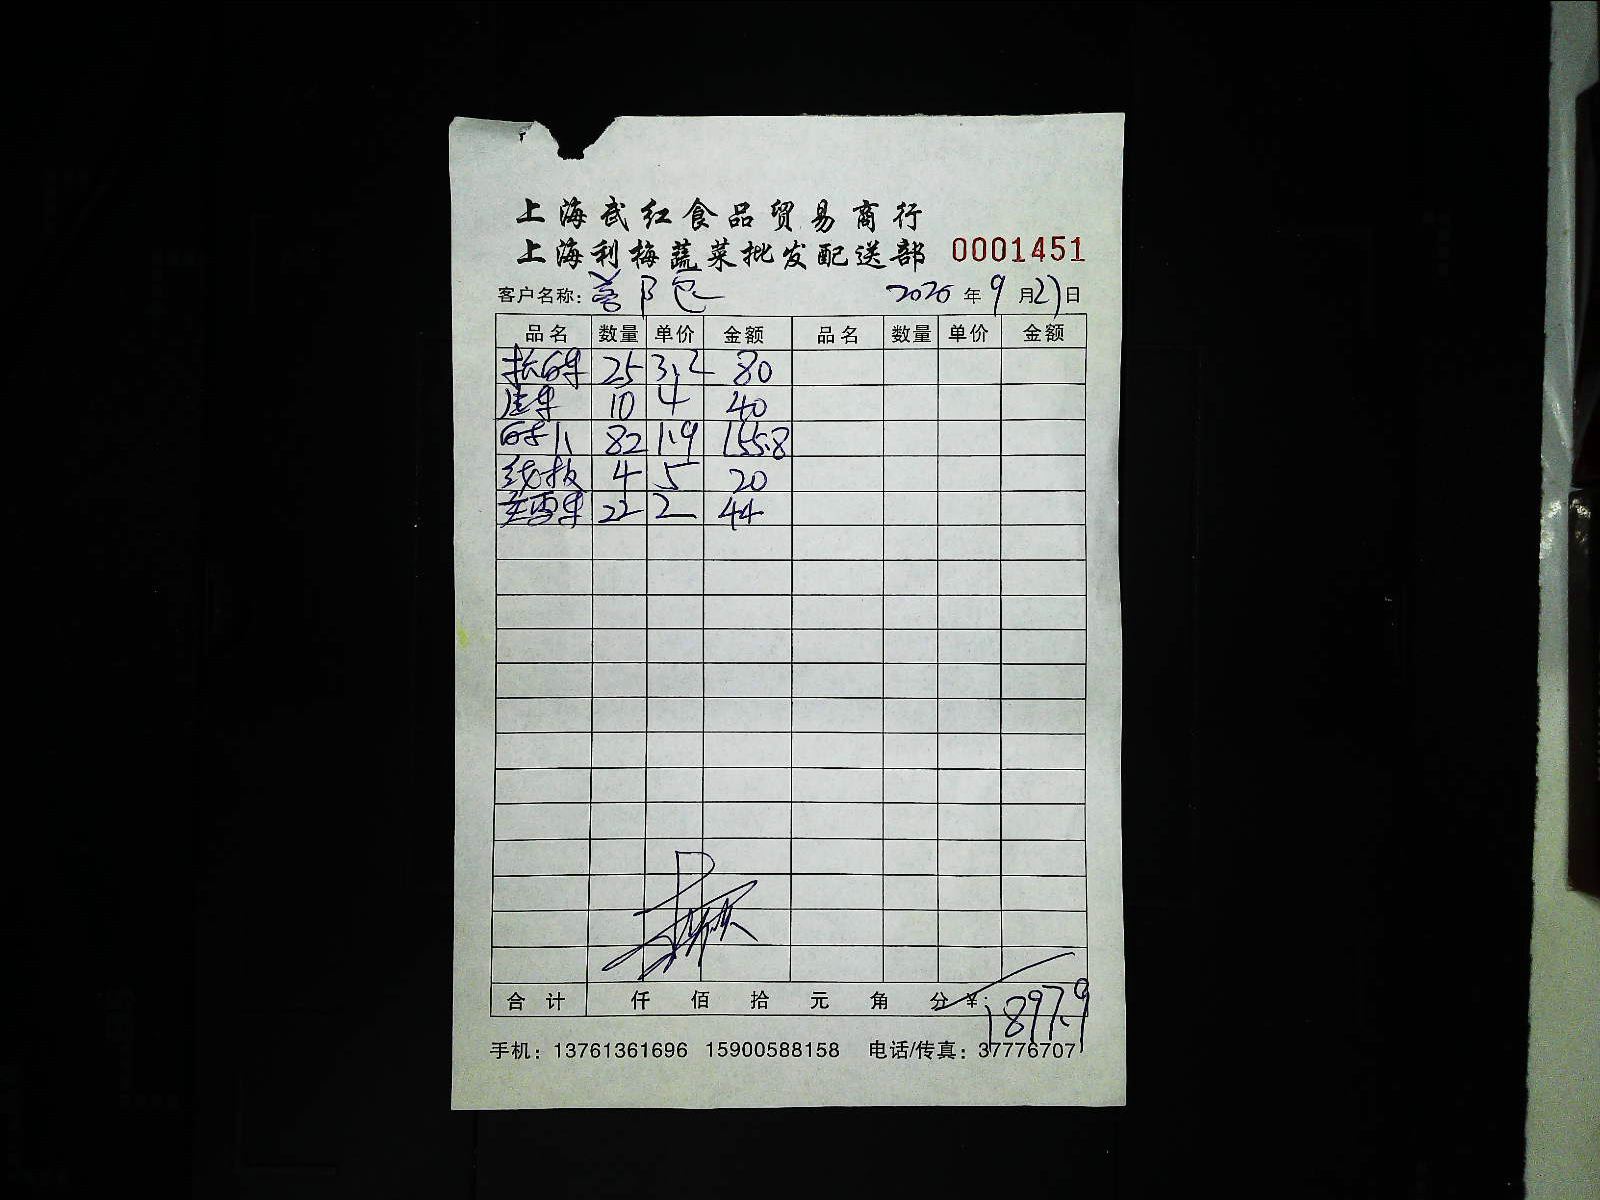 上海武红食品贸易商行
上海利梅蔬菜批发配送部 0001451
客户名称: 2020 年 9 月 21 日
品名 数量 单价 金额 品名 数量 单价 金额
25 3.2 80
10 4 40
82 1.9 155.8
4 5 20
22 2 44
合计 仟 佰 拾 元 角 分 ¥: 1897.9
手机: 13761361696 15900588158 电话/传真: 37776707